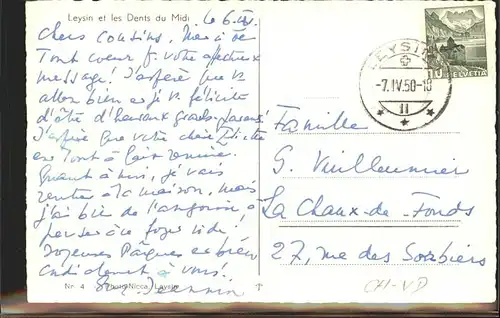 Leysin et les Dents du Midi
le 6.4.
Chers cousins, Merci de
tout coeur p. votre affectueux
message! J'espère que vs
allez bien et je vs félicite
d'être d'heureux grands-parents!
J'espère que votre chère
est tout à fait remise.
Quant à moi, je vais
rentrer à la maison, mais
j'ai bien de l'angoisse à
penser à ce foyer vide.
Joyeuses Pâques et bien
cordialement à vous.
Nr. 4 Photo Nicca, Leysin
LEYSIN
-7.IV.50-18
11
10 HELVETIA
Famille
G. Vuilleumier
La Chaux-de-Fonds
27, rue des Sorbiers
CH-VD